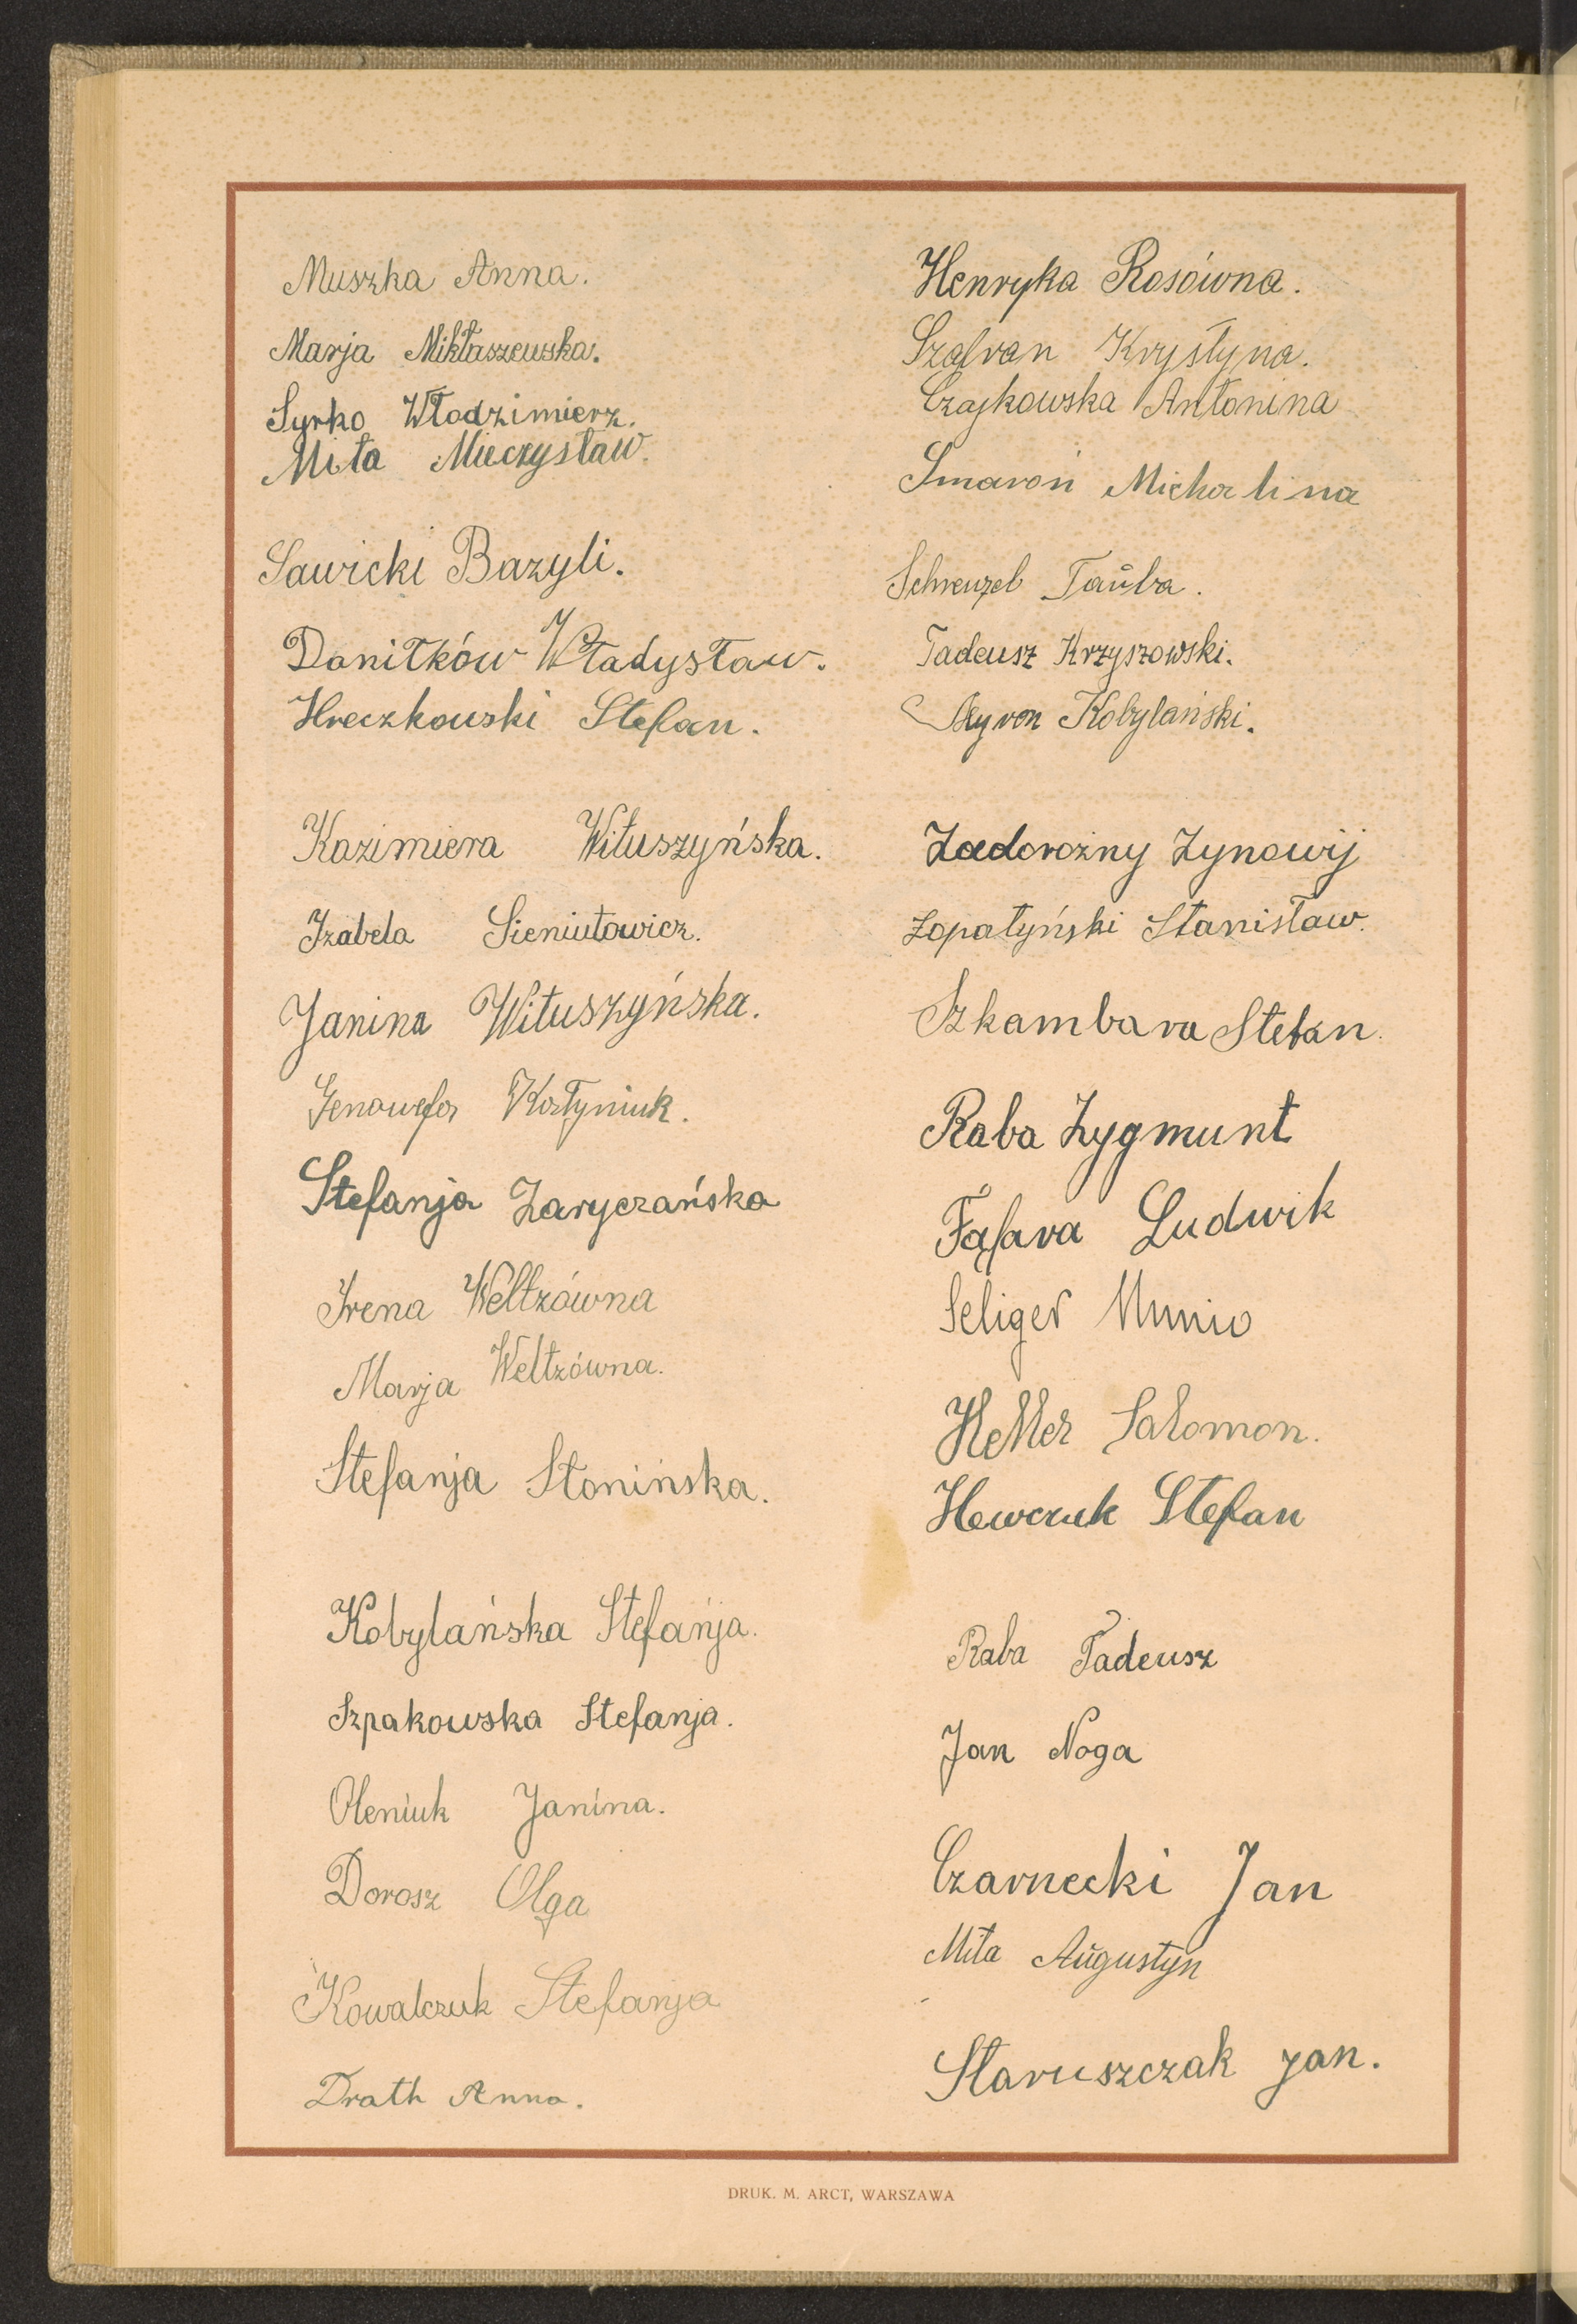 Muszka Anna.
Marja Mikłaszewska.
Syrko Włodzimierz.
Miła Mieczysław.
Sawicki Bazyli.
Daniłków Władysław.
Hreczkowski Stefan.
Kazimiera Wituszyńska.
Izabela Sieniutowicz.
Janina Wituszyńska.
Genowefa Kołtyniuk.
Stefanja Zaryczańska
Irena Weltzówna
Marja Weltzówna.
Stefanja Słonińska.
Kobylańska Stefańja.
Szpakowska Stefanja.
Oleniuk Janina.
Dorosz Olga
Kowalczuk Stefanja
Drath Anna.
Henryka Rosówna.
Szafran Krystyna.
Czajkowska Antonina
Smaroń Michalina
Schrenzel Tauba.
Tadeusz Krzyszowski.
Myron Kobylański.
Zadorożny Zynowij
Łopatyński Stanisław.
Szkambara Stefan.
Raba Zygmunt
Fąfara Ludwik
Seliger Munio
Heller Salomon.
Hewczuk Stefan
Raba Tadeusz
Jan Noga
Czarnecki Jan
Miła Augustyn
Staruszczak Jan.
DRUK. M. ARCT, WARSZAWA